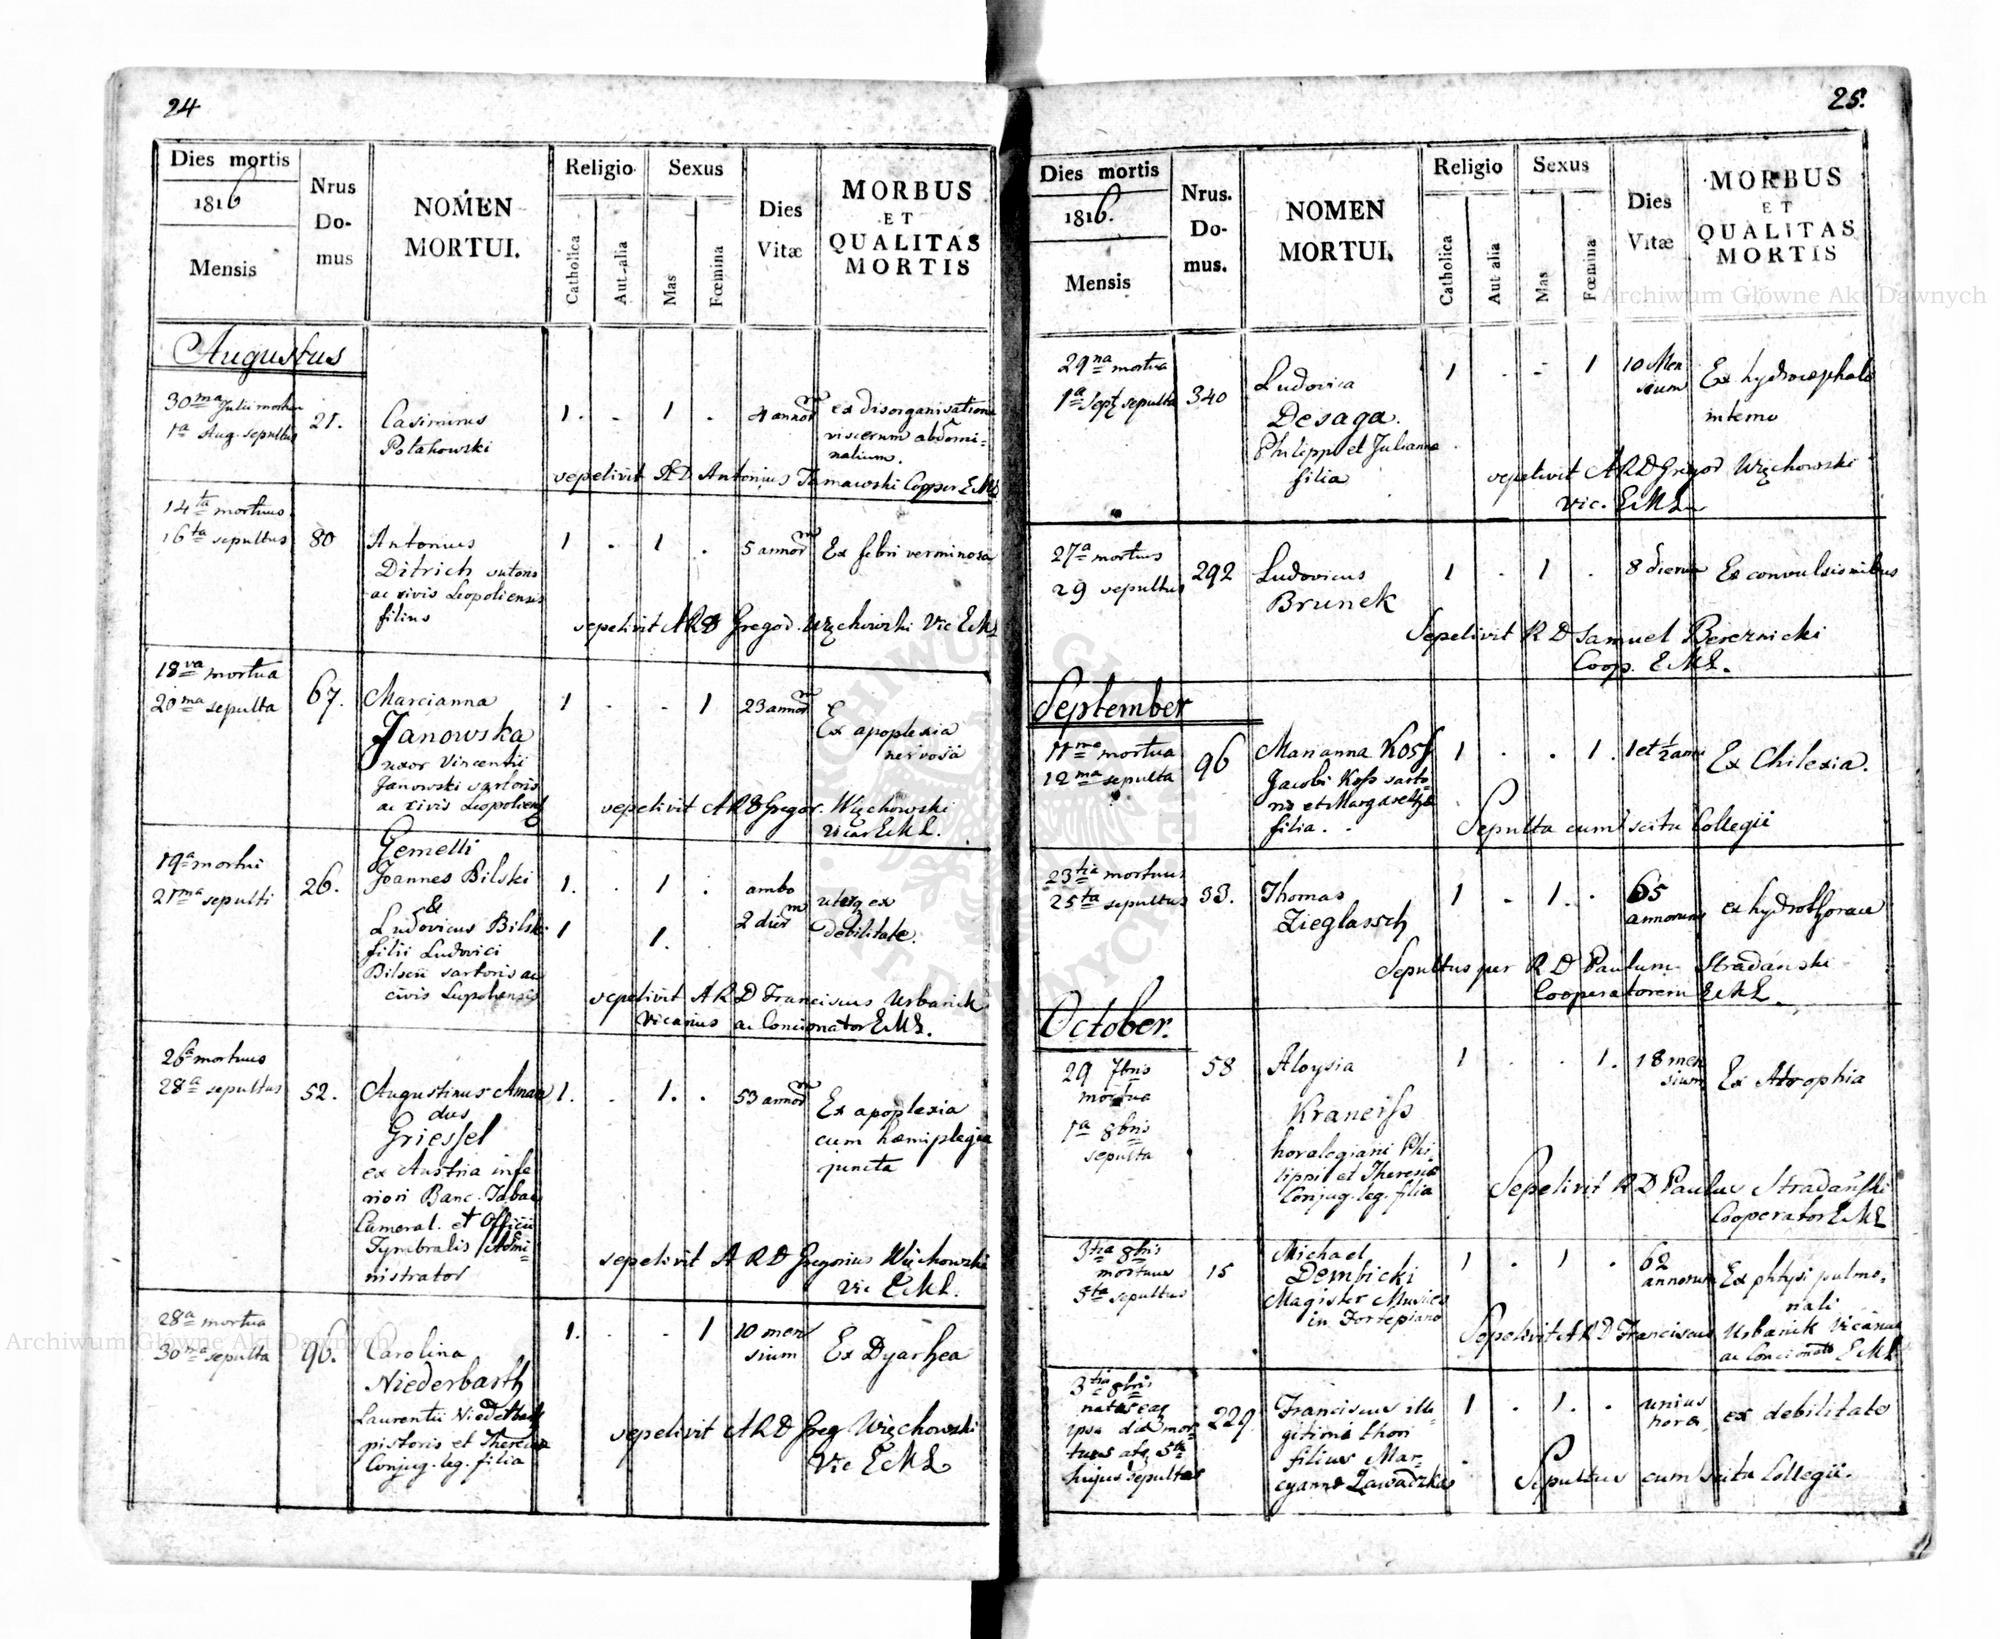 24
Dies mortis
1816
Mensis
Nrus
Do-
mus
NOMEN
MORTUI.
Religio
Catholica
Aut alia
Sexus
Mas
Fœmina
Dies
Vitæ
MORBUS
ET
QUALITAS
MORTIS
Augustus
30ma Julii mortuus
1a Aug. sepultus
21.
Casimirus
Potahowski
1. . 1 .
4 annor
ex disorganisatione
viscerum abdomi-
nalium.
sepelivit AD Antonius
14ta mortuus
16ta sepultus
80
Antonius
Ditrich sutoris
ac civis Leopoliensis
filius
1 . 1 .
5 annor
Ex febri verminosa
sepelivit ARD Gregor. Więchowski Vic EML
18va mortua
20ma sepulta
67.
Marcianna
Janowska
uxor Vincentii
Janowski sartoris
ac civis Leopoliens
1 . . 1
23 annor
Ex apoplexia
nervosa
sepelivit ARD Gregor. Więchowski
Vicar EML.
19a mortui
21ma sepulti
26.
Gemelli
Joannes Bilski
&
Ludovicus Bilski
filii Ludovici
Bilscii sartoris ac
civis Leopoliensis
1. . 1 .
1 1.
ambo
2 dier
uterq ex
debilitate.
sepelivit ARD Franciscus Urbanik
Vicarius ac Concionator EML.
26a mortuus
28a sepultus
52.
Augustinus Aman
dus
Griessel
ex Austria infe
riori Banc. Tabac
Cameral. et Officii
Tymbralis Admi-
nistrator
1. . 1. .
53 annor
Ex apoplexia
cum hæmiplegia
juncta
sepelivit ARD Gregorius Więchowski
Vic EML.
28a mortua
30ma sepulta
96.
Carolina
Niederbarth
Laurentii Niederbarth
pistoris et Theresiæ
Conjug. leg. filia
1. . . 1
10 men
sium
Ex Dyarhea
sepelivit ARD Greg Więchowski
Vic EML
25.
Dies mortis
1816.
Mensis
Nrus.
Do-
mus.
NOMEN
MORTUI.
Religio
Catholica
Aut alia
Sexus
Mas
Fœmina
Dies
Vitæ
MORBUS
ET
QUALITAS
MORTIS
29na mortua
1a Sept sepulta
340
Ludovica
Desaga.
Philippi et Julianna
filia
1 . - 1
10 Men
sium
Ex hydrocephalo
interno
sepelivit ARD Gregor Więchowski
Vic. EML
27a mortuus
29 sepultus
292
Ludovicus
Brunek
1 . 1 .
8 dierum
Ex convulsionibus
Sepelivit RD Samuel Bereznicki
Coop. EML.
September
11ma mortua
12ma sepulta
96
Marianna Koss
Jacobi Koss sarto
ris et Margarethæ
filia.
1 . . 1.
1 et 1/2 anni
Ex Chilexia.
Sepulta cum scitu Collegii
23tia mortuus
25ta sepultus
33.
Thomas
Zieglassch
1 . 1. .
65
annorum
ex hydrothorace
Sepultus per RD Paulum Stradański
Cooperatorem EML.
October.
29 7bris
mortua
1a 8bris
sepulta
58
Aloysia
Kraneiss
horalegiarii Phi-
lippi et Theresiæ
Conjug. leg. filia
1 . . 1.
18 men
sium
Ex Atrophia
Sepelivit RD Paulus Stradański
Cooperator EML
3tia 8bris
mortuus
5ta sepultus
15
Michael
Dembicki
Magister Musices
in Fortepiano
1 . 1 .
62
annorum
Ex phtysi pulmo-
nali
Sepelivit ARD Franciscus Urbanik Vicarius
ac Concionato EML
3tia 8bris
natus eaq
ipsa die mor-
tuus atq 5ta
hujus sepultus
229
Franciscus ille-
gitimi thori
filius Mar-
cyanna Zawadzka
1 . 1. .
unius
hora
ex debilitate
Sepultus cum scitu Collegii.
Archiwum Główne Akt Dawnych
Archiwum Główne Akt Dawnych
ARCHIWUM GŁÓWNE AKT DAWNYCH